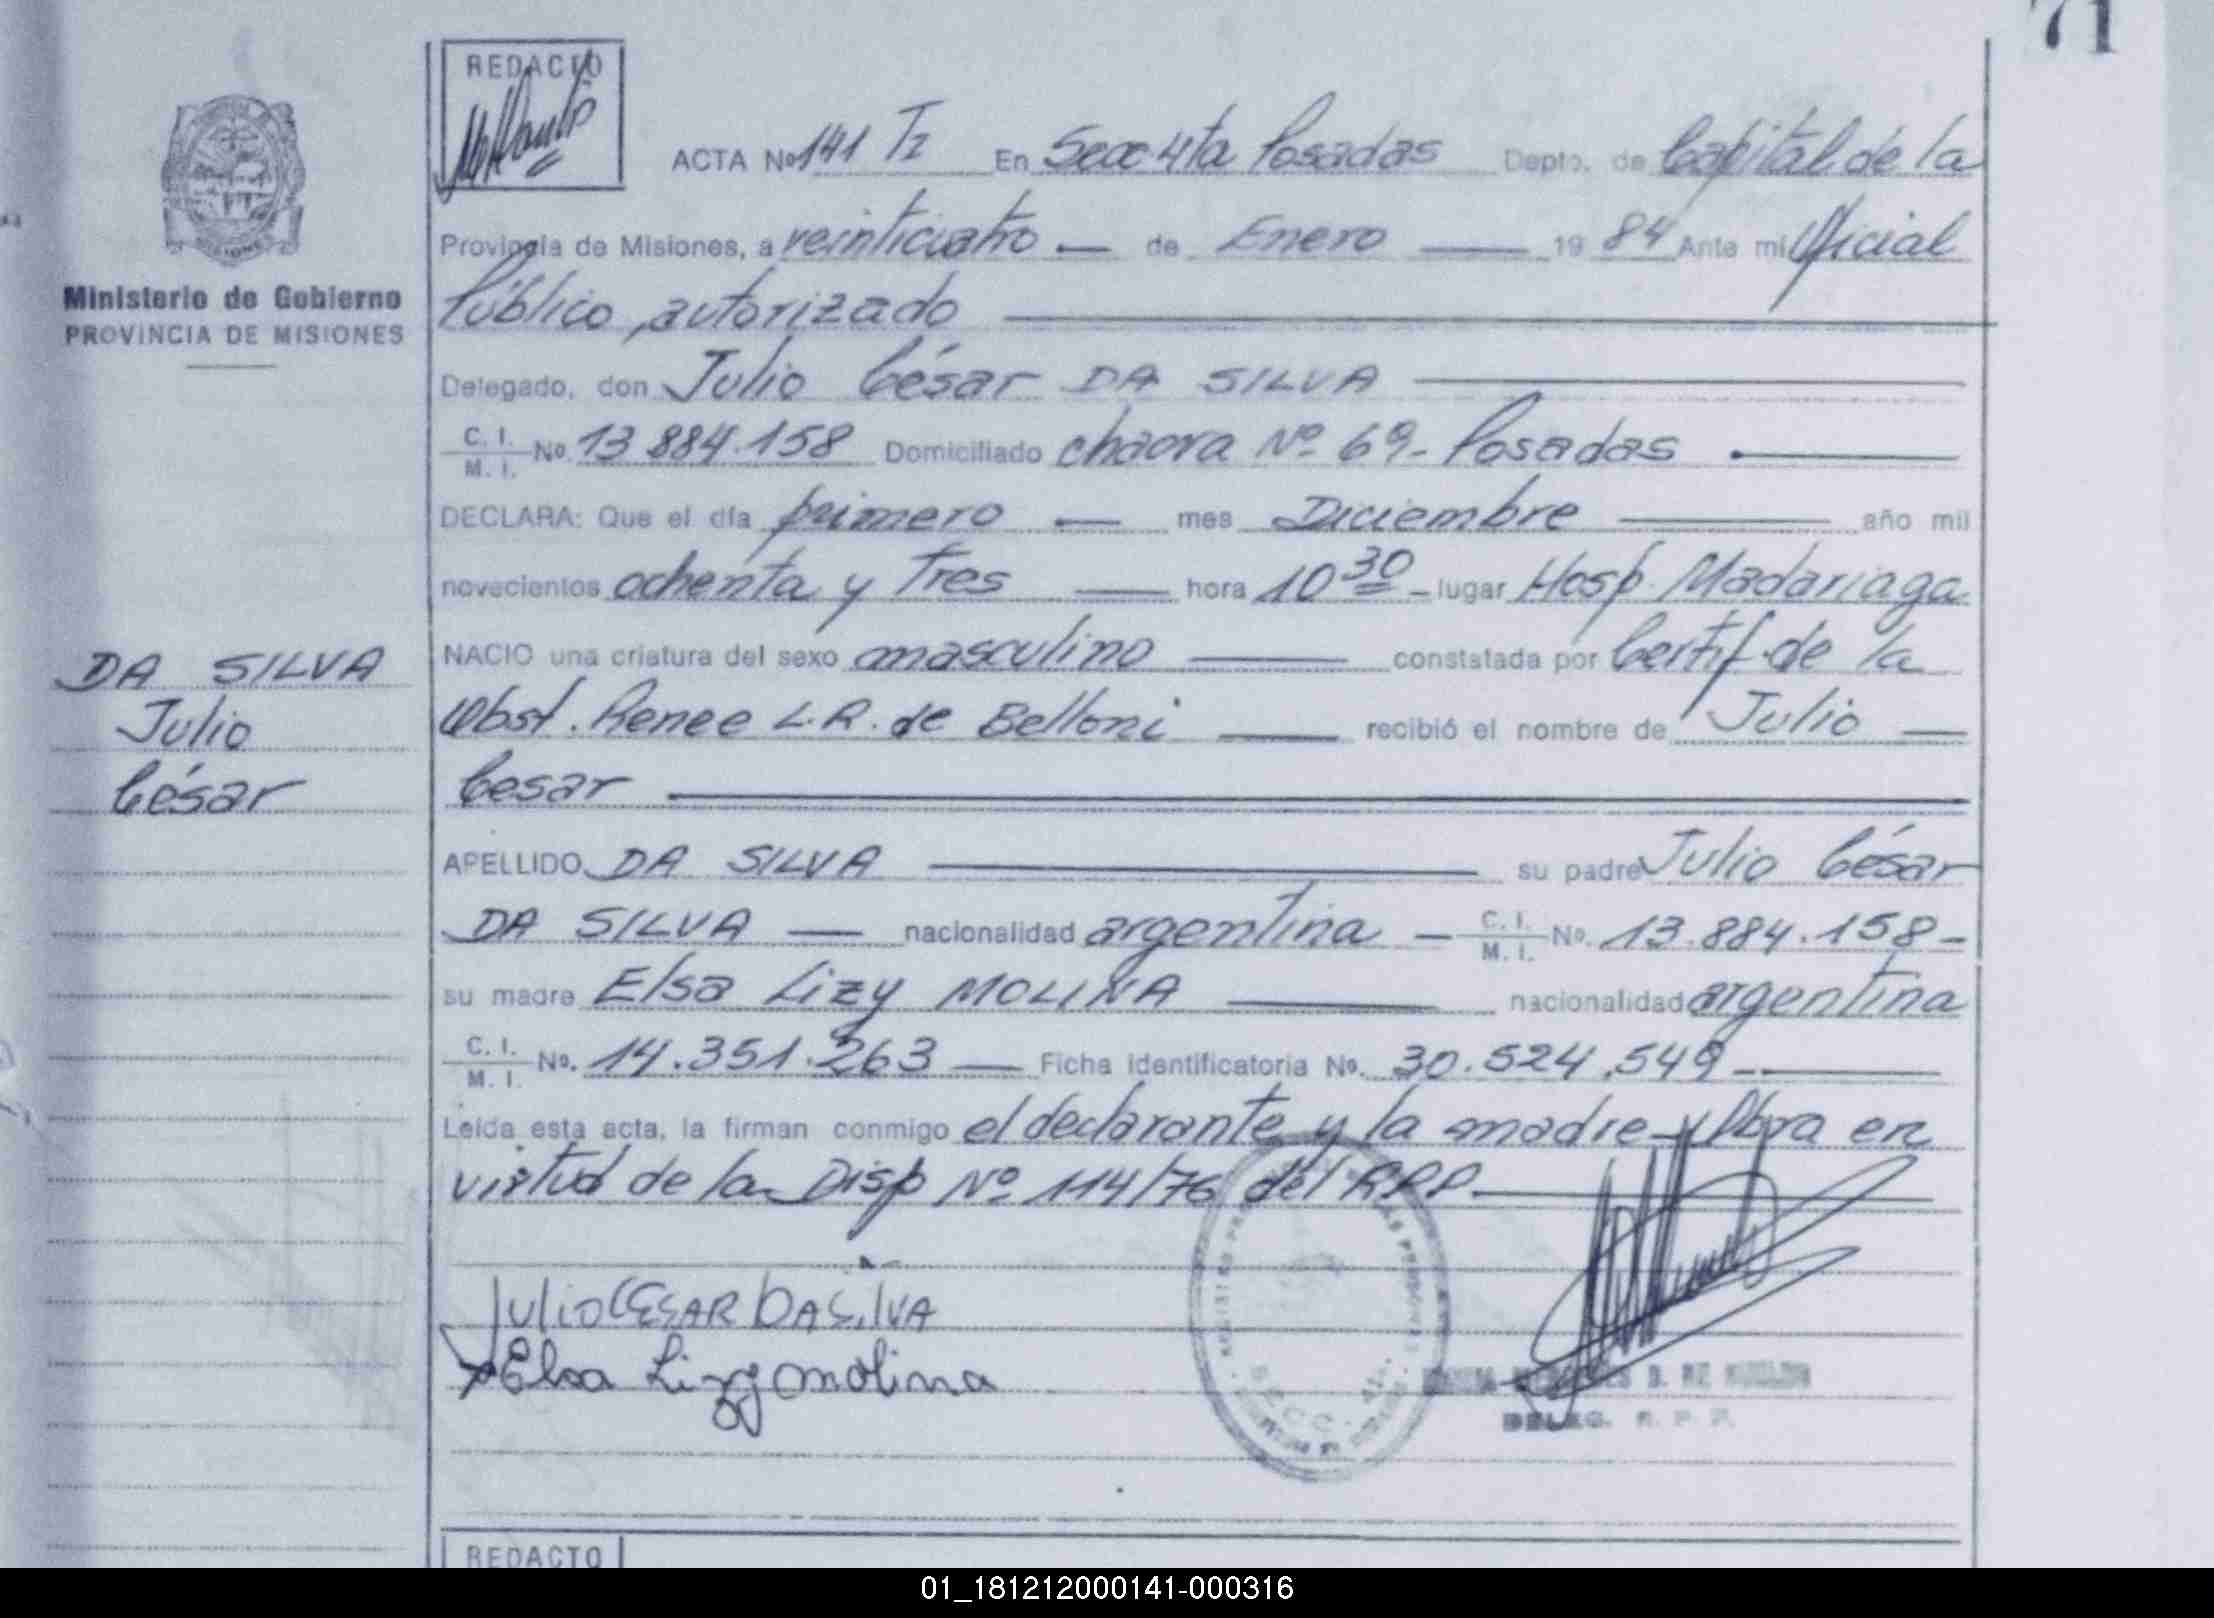 71
REDACTO
ACTA No 141 TI En Secc 4ta Posadas Depto. de Capital de la
Provincia de Misiones, a veinticuatro — de Enero — 19 84 Ante mi Oficial
Público, autorizado
Delegado, don Julio César DA SILVA
C. I. / M. I. No. 13.884.158 Domiciliado chacra Nº 69 - Posadas
DECLARA: Que el día primero — mes Diciembre — año mil
novecientos ochenta y tres — hora 10 30 - lugar Hosp. Madariaga
NACIO una criatura del sexo masculino — constatada por Certif. de la
Obst. Renee L.R. de Belloni — recibió el nombre de Julio —
Cesar
APELLIDO DA SILVA — su padre Julio César
DA SILVA — nacionalidad argentina — C. I. / M. I. No. 13.884.158 -
su madre Elsa Lizy MOLINA — nacionalidad argentina
C. I. / M. I. No. 14.351.263 — Ficha identificatoria No. 30.524.549 -
Leída esta acta, la firman conmigo el declarante y la madre - Obra en
virtud de la Disp Nº 114/76 del RPP.
JULIO CESAR DA SILVA
Elsa Lizy Molina
SECC. 4ta.
DELEG. R. P. P.
REDACTO
Ministerio de Gobierno
PROVINCIA DE MISIONES
DA SILVA
Julio
César
01_181212000141-000316